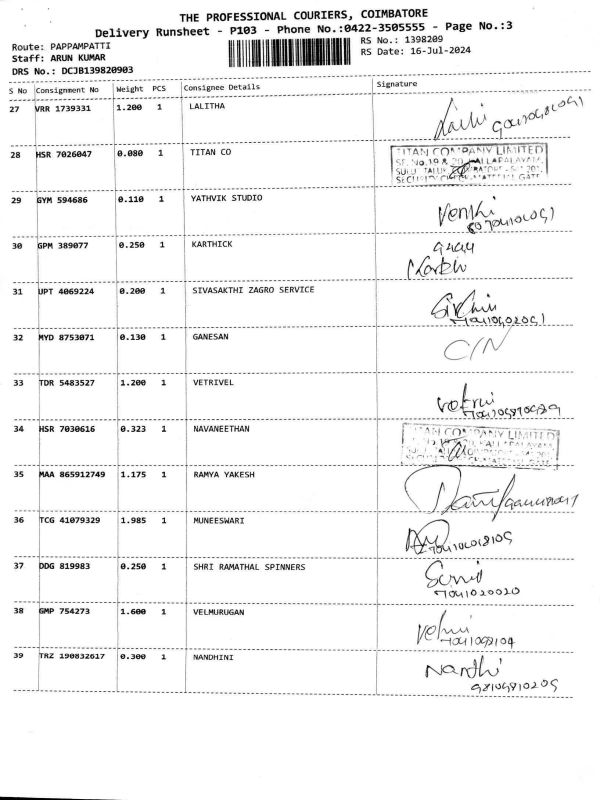 THE PROFESSIONAL COURIERS, COIMBATORE
Delivery Runsheet - P103 - Phone No.:0422-3505555 - Page No.:3
Route: PAPPAMPATTI
RS No.: 1398209
Staff: ARUN KUMAR
RS Date: 16-Jul-2024
DRS No.: DCJB139820903
S No Consignment No Weight PCS Consignee Details Signature
27 VRR 1739331 1.200 1 LALITHA
28 HSR 7026047 0.080 1 TITAN CO
TITAN COMPANY LIMITED
29 GYM 594686 0.110 1 YATHVIK STUDIO
Venki
30 GPM 389077 0.250 1 KARTHICK
31 UPT 4069224 0.200 1 SIVASAKTHI ZAGRO SERVICE
32 MYD 8753071 0.130 1 GANESAN
C/N
33 TDR 5483527 1.200 1 VETRIVEL
34 HSR 7030616 0.323 1 NAVANEETHAN
TITAN COMPANY LIMITED
35 MAA 865912749 1.175 1 RAMYA YAKESH
36 TCG 41079329 1.985 1 MUNEESWARI
37 DDG 819983 0.250 1 SHRI RAMATHAL SPINNERS
38 GMP 754273 1.600 1 VELMURUGAN
39 TRZ 190832617 0.300 1 NANDHINI
Nandhi